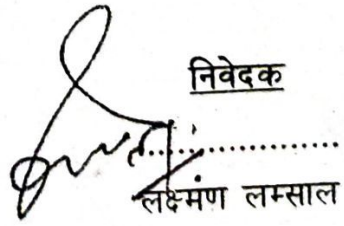 निवेदक
.......................
लक्ष्मंण लम्साल